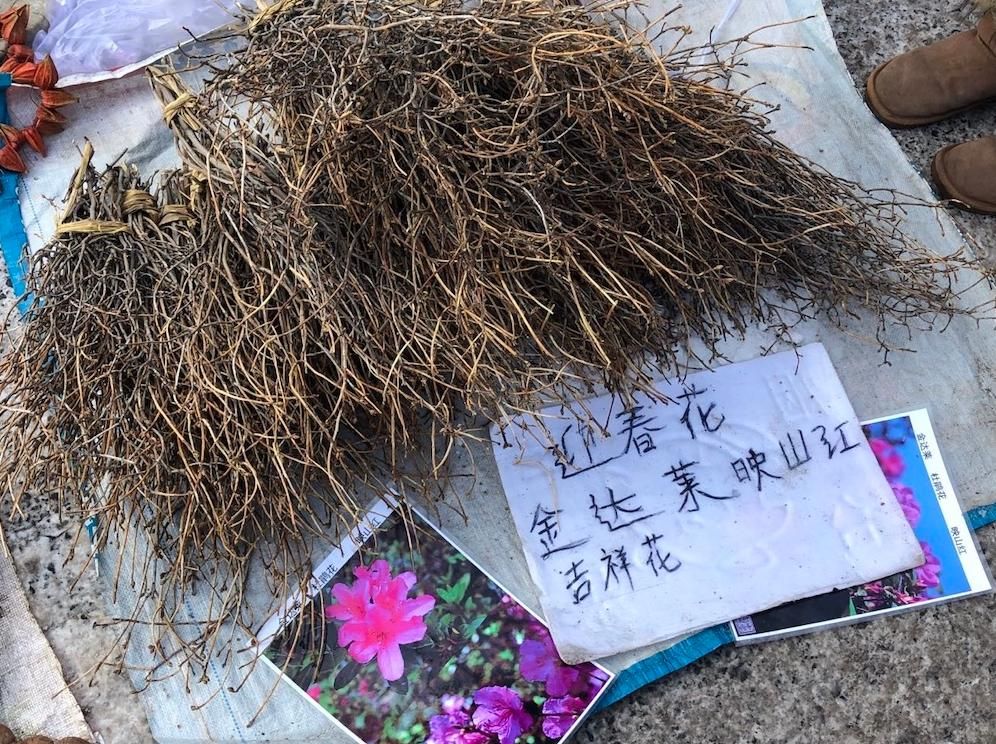 迎春花
金达莱映山红
吉祥花
杜鹃花
映山红
金达莱 杜鹃花 映山红